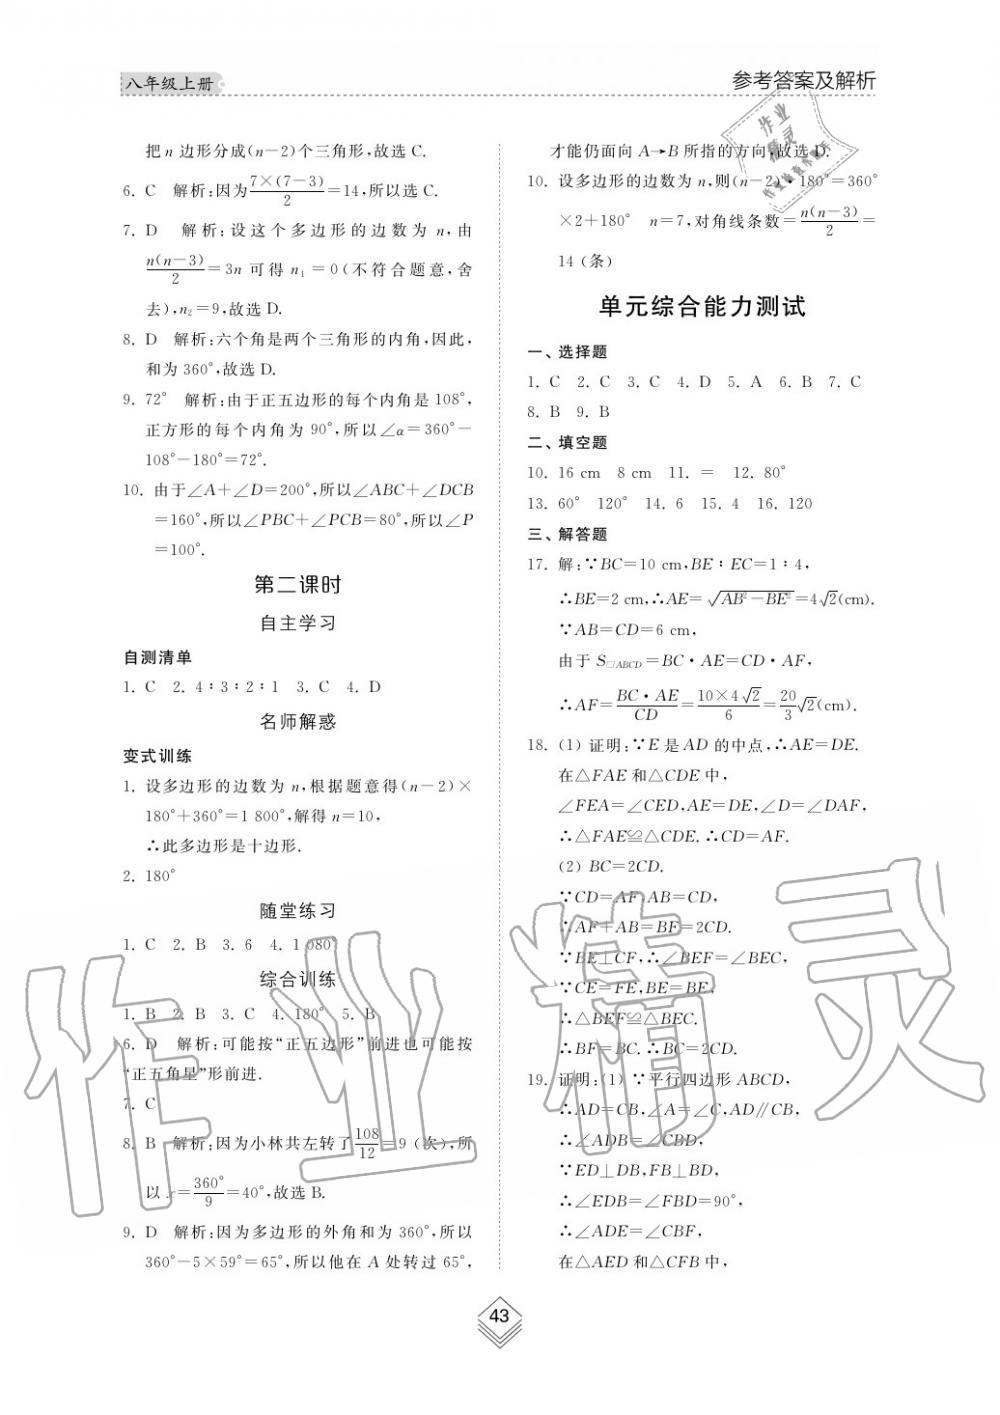 八年级上册
参考答案及解析
把 n 边形分成(n－2)个三角形,故选 C.
6. C 解析:因为7×(7－3)/2＝14,所以选 C.
7. D 解析:设这个多边形的边数为 n,由
n(n－3)/2＝3n 可得 n₁＝0(不符合题意,舍
去),n₂＝9,故选 D.
8. D 解析:六个角是两个三角形的内角,因此,
和为 360°,故选 D.
9. 72° 解析:由于正五边形的每个内角是 108°,
正方形的每个内角为 90°,所以∠α＝360°－
108°－180°＝72°.
10. 由于∠A＋∠D＝200°,所以∠ABC＋∠DCB
＝160°,所以∠PBC＋∠PCB＝80°,所以∠P
＝100°.
第二课时
自主学习
自测清单
1. C 2. 4∶3∶2∶1 3. C 4. D
名师解惑
变式训练
1. 设多边形的边数为 n,根据题意得(n－2)×
180°＋360°＝1 800°,解得 n＝10,
∴此多边形是十边形.
2. 180°
随堂练习
1. C 2. B 3. 6 4. 1 080°
综合训练
1. B 2. B 3. C 4. 180° 5. B
6. D 解析:可能按“正五边形”前进也可能按
“正五角星”形前进.
7. C
8. B 解析:因为小林共左转了108/12＝9(次),所
以 x＝360°/9＝40°,故选 B.
9. D 解析:因为多边形的外角和为 360°,所以
360°－5×59°＝65°,所以他在 A 处转过 65°,
才能仍面向 A→B 所指的方向,故选 D.
10. 设多边形的边数为 n,则(n－2)·180°＝360°
×2＋180° n＝7,对角线条数＝n(n－3)/2＝
14(条)
单元综合能力测试
一、选择题
1. C 2. C 3. C 4. D 5. A 6. B 7. C
8. B 9. B
二、填空题
10. 16 cm 8 cm 11. ＝ 12. 80°
13. 60° 120° 14. 6 15. 4 16. 120
三、解答题
17. 解:∵BC＝10 cm,BE∶EC＝1∶4,
∴BE＝2 cm,∴AE＝√(AB²－BE²)＝4√2(cm).
∵AB＝CD＝6 cm,
由于 S□ABCD＝BC·AE＝CD·AF,
∴AF＝BC·AE/CD＝10×4√2/6＝20/3√2(cm).
18. (1) 证明:∵E 是 AD 的中点,∴AE＝DE.
在△FAE 和△CDE 中,
∠FEA＝∠CED,AE＝DE,∠D＝∠DAF,
∴△FAE≌△CDE.∴CD＝AF.
(2) BC＝2CD.
∵CD＝AF,AB＝CD,
∴AF＋AB＝BF＝2CD.
∵BE⊥CF,∴∠BEF＝∠BEC,
∵CE＝FE,BE＝BE,
∴△BEF≌△BEC.
∴BF＝BC.∴BC＝2CD.
19. 证明:(1) ∵平行四边形 ABCD,
∴AD＝CB,∠A＝∠C,AD∥CB,
∴∠ADB＝∠CBD,
∵ED⊥DB,FB⊥BD,
∴∠EDB＝∠FBD＝90°,
∴∠ADE＝∠CBF,
在△AED 和△CFB 中,
43
作业精灵
作业精灵